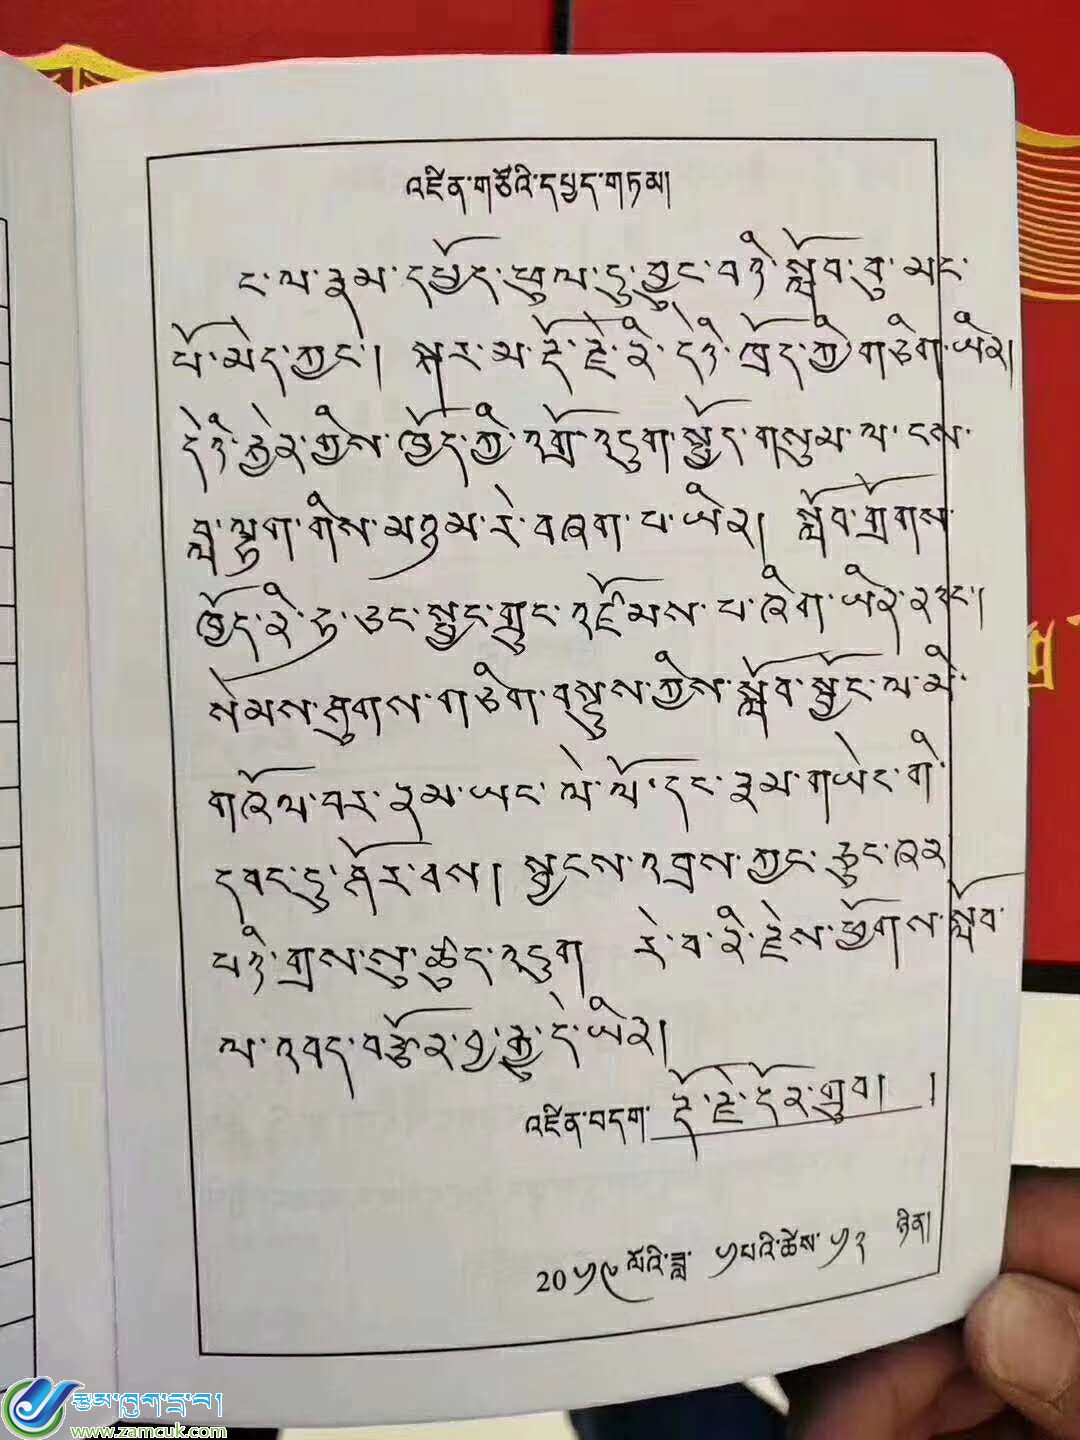 འཛིན་གཙོའི་དཔྱད་གཏམ།
ང་ལ་རྣམ་དཔྱོད་ཕུལ་དུ་བྱུང་བའི་སློབ་བུ་མང་
པོ་མེད་ཀྱང་། སྐར་མ་རྡོ་རྗེ་ནི་དེའི་ཁྲོད་ཀྱི་གཅིག་ཡིན།
དེའི་རྐྱེན་གྱིས་ཁྱོད་ཀྱི་འགྲོ་འདུག་སྤྱོད་གསུམ་ལ་ངས་
བླ་ལྷག་གིས་མཉམ་རེ་བཞག་པ་ཡིན། སློབ་གྲོགས་
ཁྱོད་ནི་ཧ་ཅང་སྤྱང་གྲུང་འཛོམས་པ་ཞིག་ཡིན་ནའང་།
སེམས་ཤུགས་གཅིག་བསྡུས་ཀྱིས་སློབ་སྦྱོང་ལ་མི་
གཞོལ་བར་རྣམ་ཡང་ལེ་ལོ་དང་རྣམ་གཡེང་གི་
དབང་དུ་ཤོར་བས། སྦྱངས་འབྲས་ཀྱང་ཅུང་ཞན་
པའི་གྲས་སུ་ཚུད་འདུག རེ་བ་ནི་རྗེས་ཕྱོགས་སློབ་
ལ་འབད་བརྩོན་བྱ་རྒྱུ་དེ་ཡིན།
འཛིན་བདག་ རྡོ་རྗེ་དོན་གྲུབ། །
20༡༩ ལོའི་ཟླ་ ༡པའི་ཚེས་ ༡༢ ཉིན།
རྩམ་ཁུག་དྲ་བ།
www.zamcuk.com